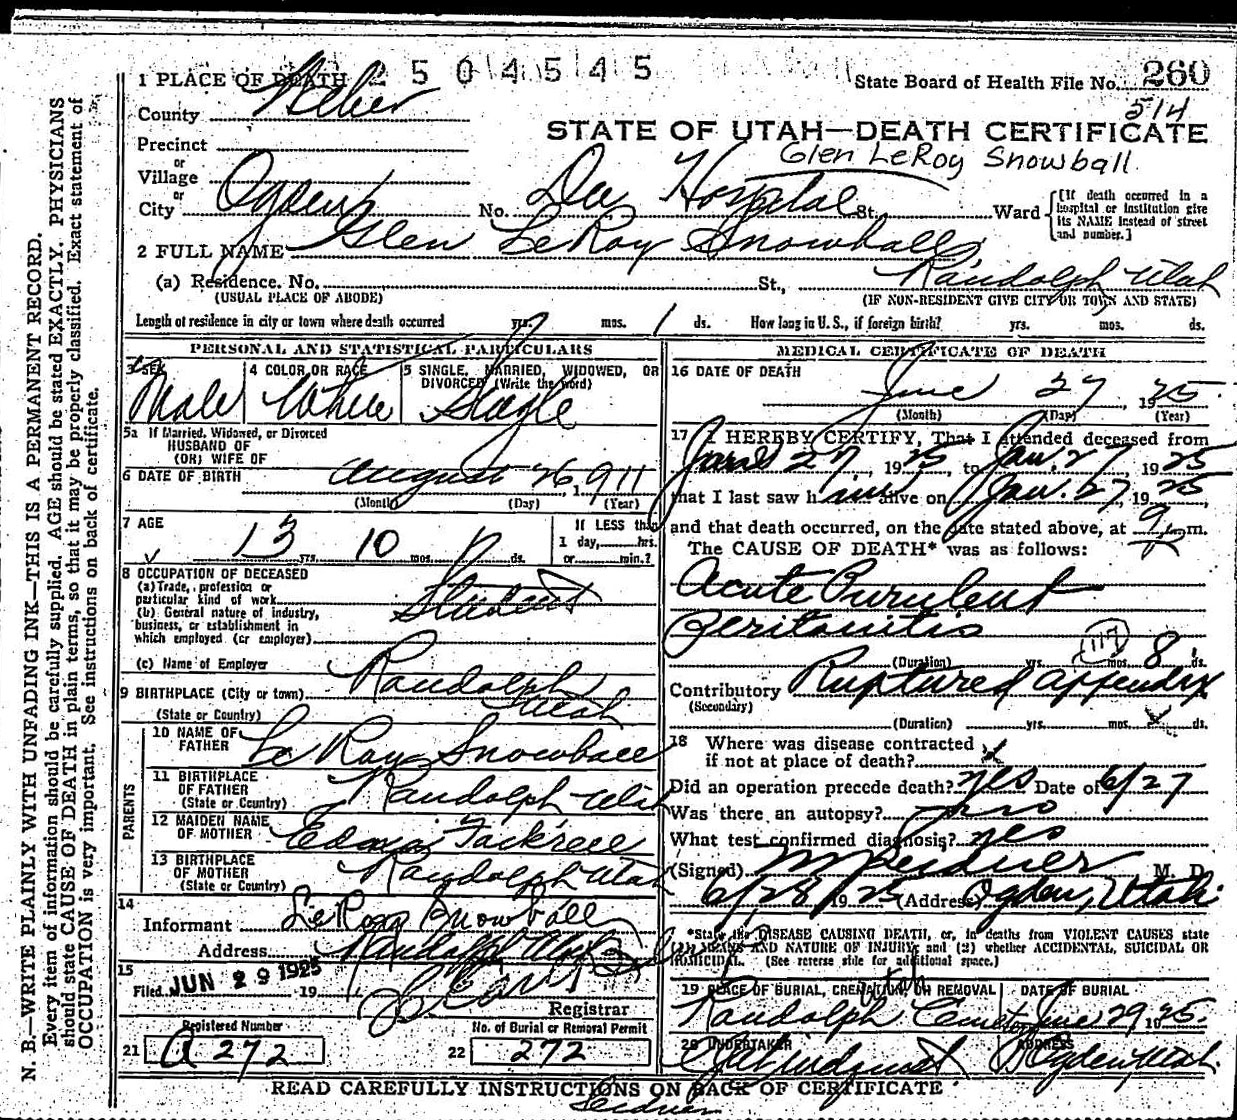 1 PLACE OF DEATH 2504545
State Board of Health File No. 260
514
County Weber
STATE OF UTAH—DEATH CERTIFICATE
Precinct
Glen LeRoy Snowball
or
Village
or
City Ogden No. Dee Hospital St. Ward
[If death occurred in a hospital or institution give its NAME instead of street and number.]
2 FULL NAME Glen LeRoy Snowball
(a) Residence. No. St., Randolph Utah
(USUAL PLACE OF ABODE) (IF NON-RESIDENT GIVE CITY OR TOWN AND STATE)
Length of residence in city or town where death occurred yrs. mos. 1 ds. How long in U. S., if foreign birth? yrs. mos. ds.
PERSONAL AND STATISTICAL PARTICULARS
3 SEX 4 COLOR OR RACE 5 SINGLE, MARRIED, WIDOWED, OR
DIVORCED (Write the word)
Male White Single
5a If Married, Widowed, or Divorced
HUSBAND OF
(OR) WIFE OF
6 DATE OF BIRTH August 26, 1911
(Month) (Day) (Year)
7 AGE If LESS than
13 yrs. 10 mos. ds. 1 day, hrs.
or min.?
8 OCCUPATION OF DECEASED
(a) Trade, profession or
particular kind of work Student
(b) General nature of industry,
business, or establishment in
which employed (or employer)
(c) Name of Employer
9 BIRTHPLACE (City or town) Randolph
(State or Country) Utah
PARENTS
10 NAME OF
FATHER Le Roy Snowball
11 BIRTHPLACE
OF FATHER
(State or Country) Randolph Utah
12 MAIDEN NAME
OF MOTHER Edna Tackrell
13 BIRTHPLACE
OF MOTHER
(State or Country) Randolph Utah
14
Informant LeRoy Snowball
Address Randolph Utah
15
Filed JUN 29 1925 19
Registrar
Registered Number No. of Burial or Removal Permit
21 A 272 22 272
MEDICAL CERTIFICATE OF DEATH
16 DATE OF DEATH
June 27, 1925
(Month) (Day) (Year)
17 I HEREBY CERTIFY, That I attended deceased from
June 27, 1925 to Jan. 27, 1925
that I last saw him alive on Jan. 27, 1925
and that death occurred, on the date stated above, at 9 m.
The CAUSE OF DEATH* was as follows:
Acute Purulent
Peritonitis
117
(Duration) yrs. mos. 8 ds.
Contributory Ruptured appendix
(Secondary)
(Duration) yrs. mos. ds.
18 Where was disease contracted
if not at place of death?
Did an operation precede death? yes Date of 6/27
Was there an autopsy? no
What test confirmed diagnosis? yes
(Signed) M. D.
6/28 1925 (Address) Ogden, Utah
*State the DISEASE CAUSING DEATH, or, in deaths from VIOLENT CAUSES state
(1) MEANS AND NATURE OF INJURY; and (2) whether ACCIDENTAL, SUICIDAL OR
HOMICIDAL. (See reverse side for additional space.)
19 PLACE OF BURIAL, CREMATION, OR REMOVAL DATE OF BURIAL
Utah
Randolph Cemetery June 29 1925.
20 UNDERTAKER ADDRESS
Ogden, Utah.
READ CAREFULLY INSTRUCTIONS ON BACK OF CERTIFICATE
N. B.—WRITE PLAINLY WITH UNFADING INK—THIS IS A PERMANENT RECORD.
Every item of information should be carefully supplied. AGE should be stated EXACTLY. PHYSICIANS
should state CAUSE OF DEATH in plain terms, so that it may be properly classified. Exact statement of
OCCUPATION is very important. See instructions on back of certificate.